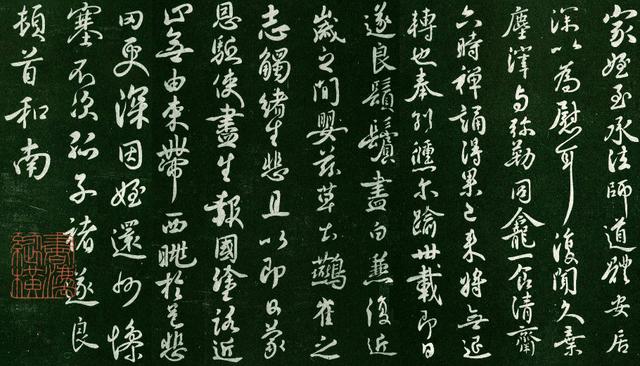 家姪至承法師道體安居
深以為慰耳復聞久棄
塵滓與弥勒同龕一食清齋
六時禪誦得果已來將無退
轉也奉别倐尔踰卅載即日
遂良鬚鬢盡白兼復近
歲之間嬰茲草土燕雀之
志觸緒生悲且以即日蒙
恩驅使盡生報國塗路近
止無由束帶西眺於邑悲
罔更深因姪還州慘
塞不次孤子褚遂良
頓首和南